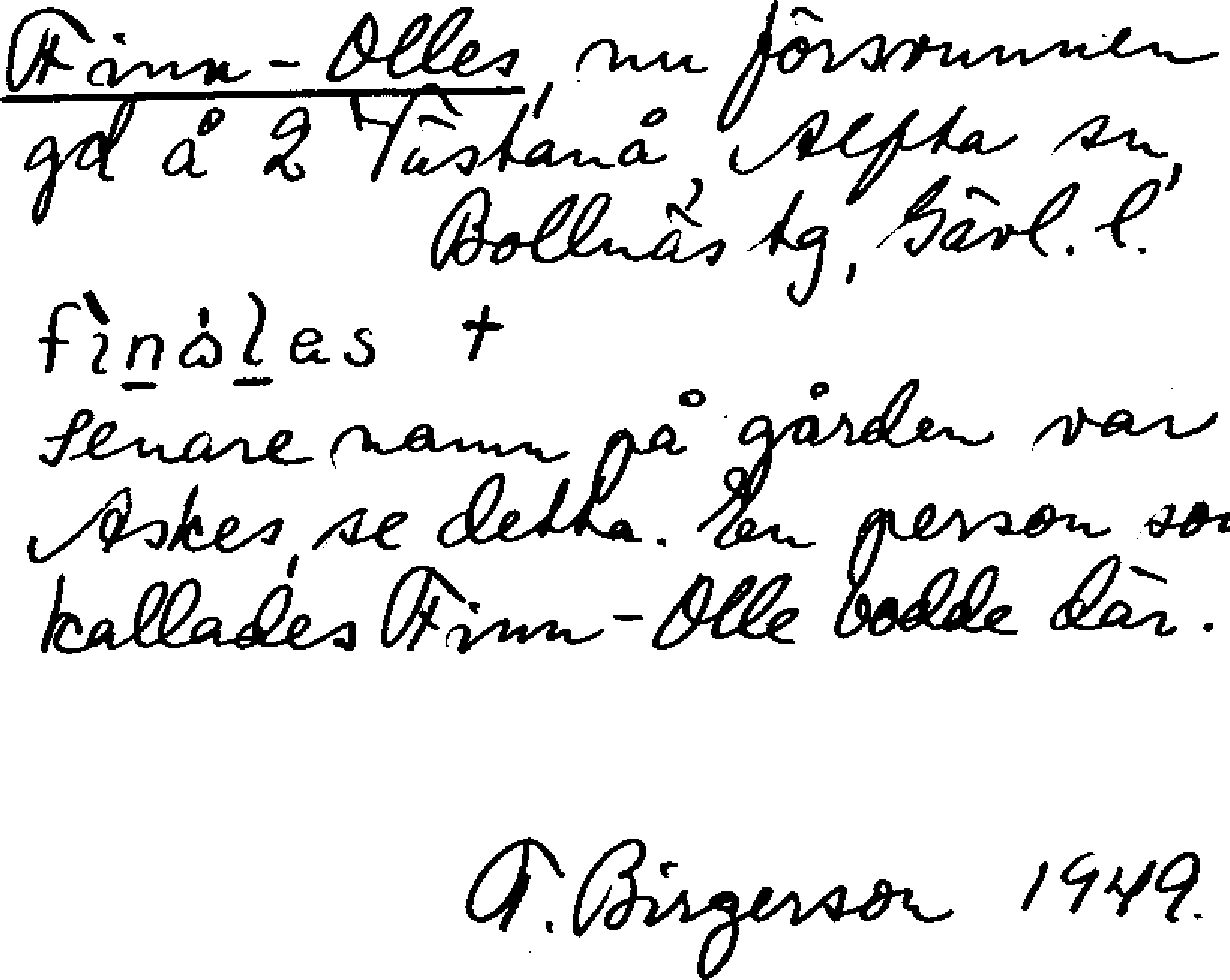 Finn-Olles, nu försvunnen
gd å 2 Tüstanå, Alfta sn,
Bollnäs tg, Gävl. l.
fìnå̀les +
Senare namn på gården var
Askes, se detta. En person som
kallades Finn-Olle bodde där.
F. Birgerson 1949.